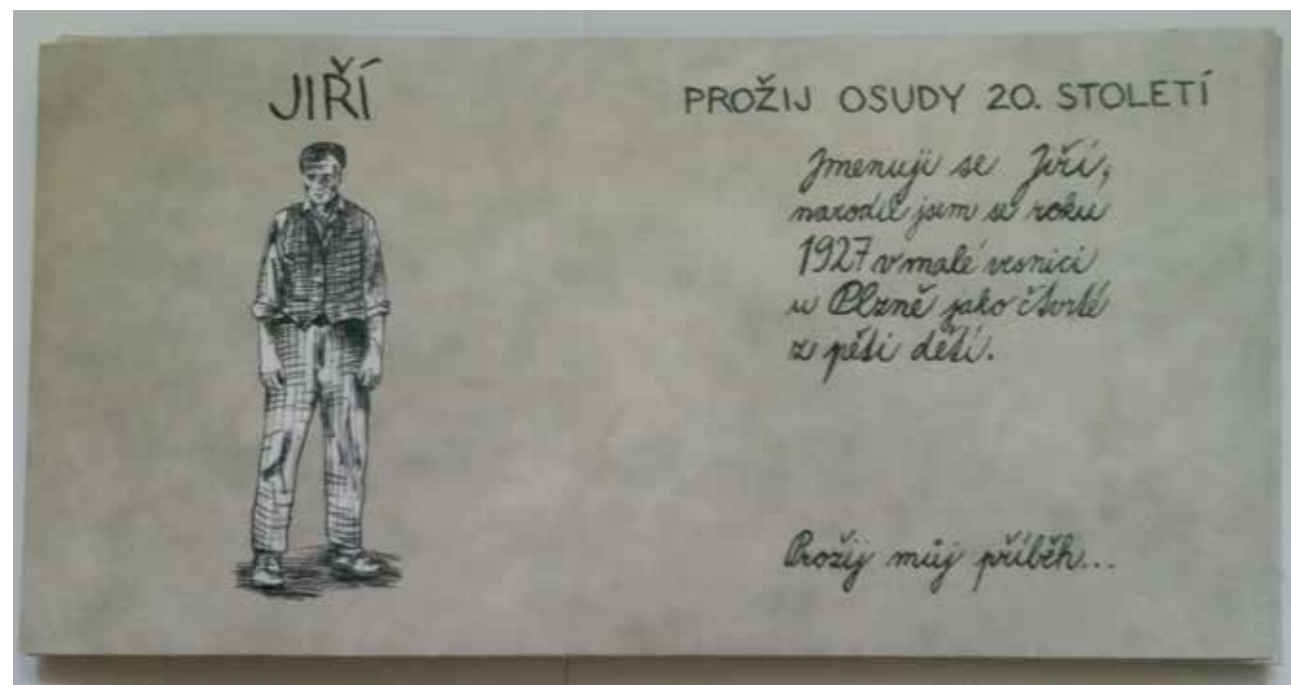 JIŘÍ
PROŽIJ OSUDY 20. STOLETÍ
Jmenuji se Jiří,
narodil jsem se roku
1927 v malé vesnici
u Plzně jako čtvrté
z pěti dětí.
Prožij můj příběh...